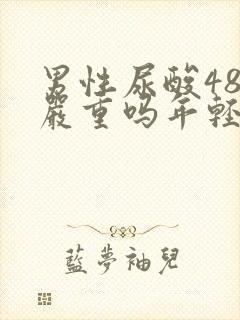 男性尿酸48
嚴重吗年輕
藍夢袖兒